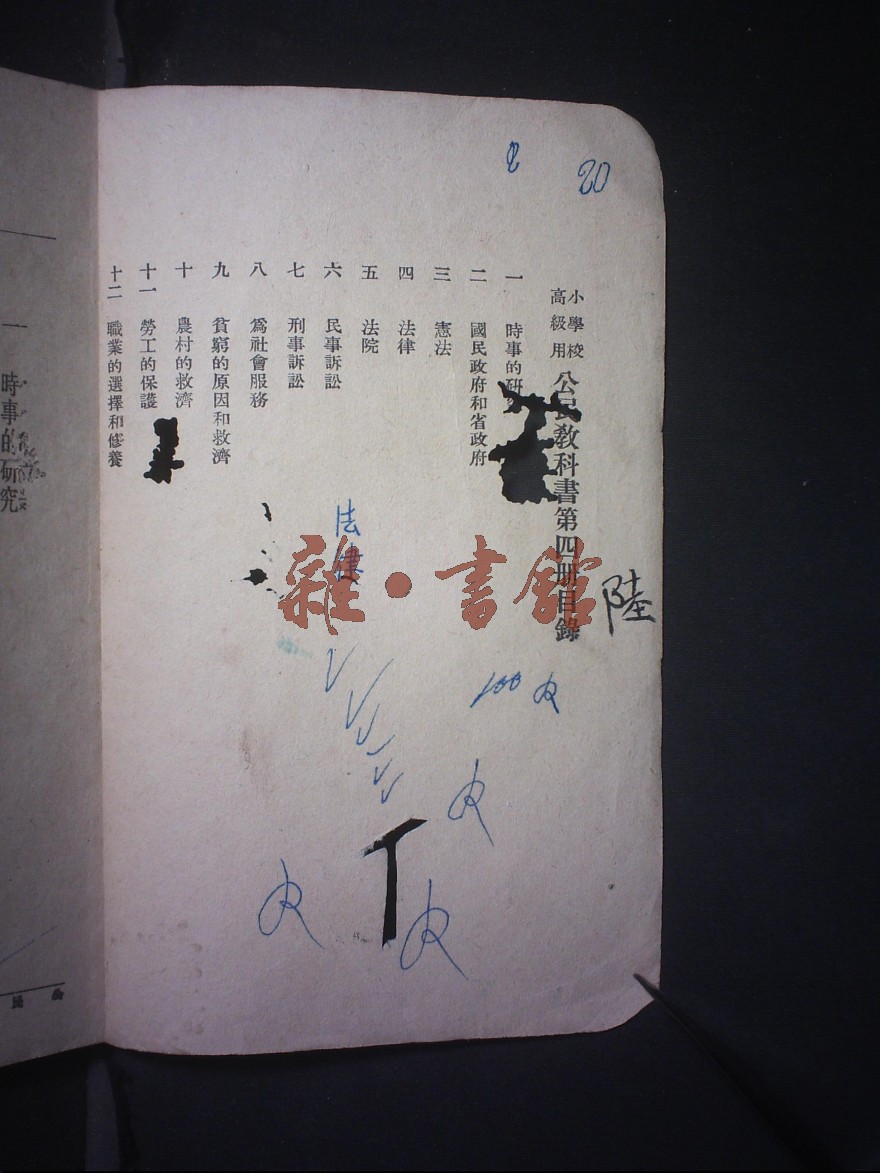 20
小學校
高級用
公民教科書第四册目錄
一 時事的研
二 國民政府和省政府
三 憲法
四 法律
五 法院
六 民事訴訟
七 刑事訴訟
八 爲社會服務
九 貧窮的原因和救濟
十 農村的救濟
十一 勞工的保護
十二 職業的選擇和修養
陸
法律
雜·書館
100
一 時事的研究